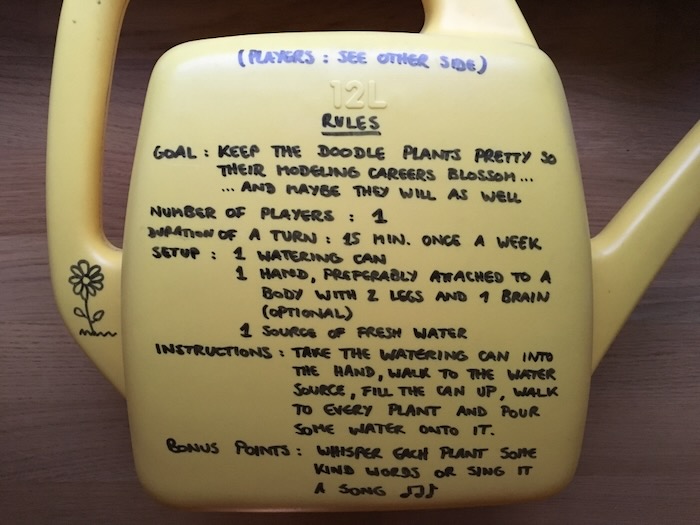 (PLAYERS : SEE OTHER SIDE)
12L
RULES
GOAL : KEEP THE DOODLE PLANTS PRETTY SO
THEIR MODELING CAREERS BLOSSOM...
... AND MAYBE THEY WILL AS WELL
NUMBER OF PLAYERS : 1
DURATION OF A TURN : 15 MIN. ONCE A WEEK
SETUP : 1 WATERING CAN
1 HAND, PREFERABLY ATTACHED TO A
BODY WITH 2 LEGS AND 1 BRAIN
(OPTIONAL)
1 SOURCE OF FRESH WATER
INSTRUCTIONS : TAKE THE WATERING CAN INTO
THE HAND, WALK TO THE WATER
SOURCE, FILL THE CAN UP, WALK
TO EVERY PLANT AND POUR
SOME WATER ONTO IT.
BONUS POINTS : WHISPER EACH PLANT SOME
KIND WORDS OR SING IT
A SONG ♫♪